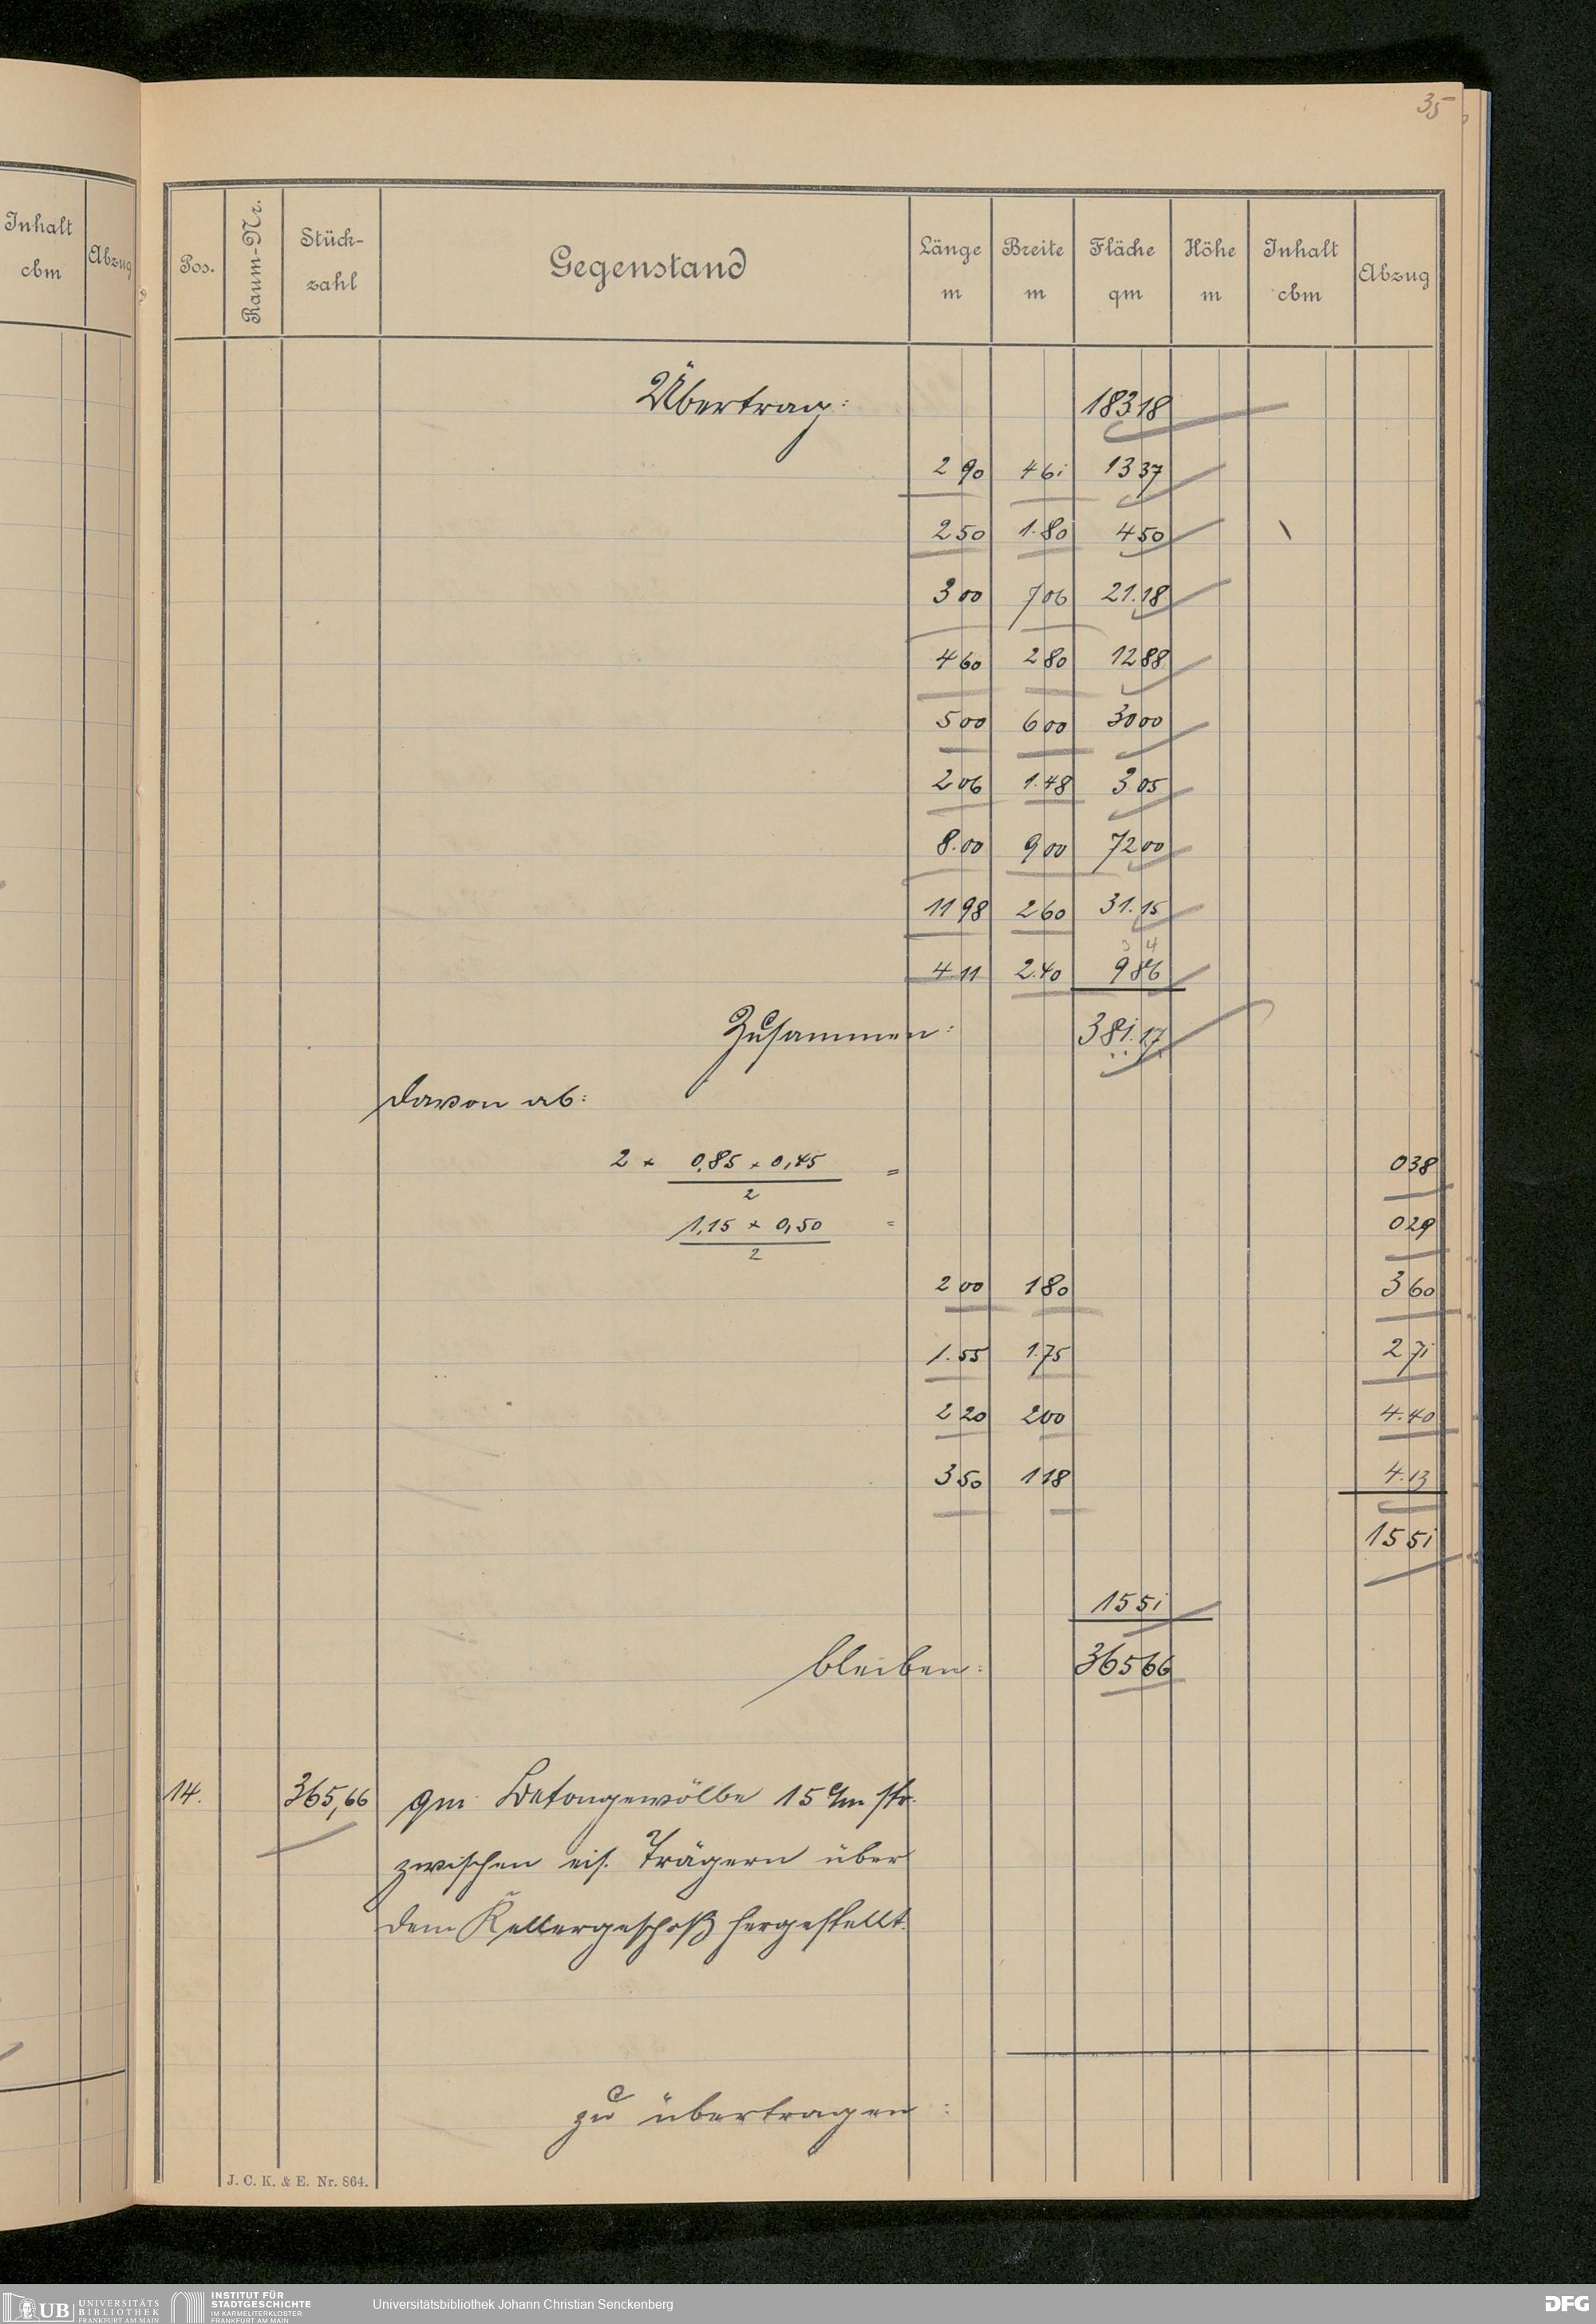 35
Inhalt cbm Abzug
Pos. Raum-Nr. Stück-zahl Gegenstand Länge m Breite m Fläche qm Höhe m Inhalt cbm Abzug
Übertrag: 183 18
2 90 4 61 13 37
2 50 1.80 4 50
3 00 7 06 21.18
4 60 2 80 12 88
5 00 6 00 30 00
2 06 1.48 3 05
8.00 9 00 72 00
11 98 2 60 31.15
3 4
4 11 2.40 9 86
Zusammen: 381.17
davon ab:
2 × 0,85 × 0,45 / 2 = 0 38
1,15 × 0,50 / 2 = 0 29
2 00 1 80 3 60
1.55 1.75 2 71
2 20 2 00 4.40
3 50 1 18 4.13
15 51
15 51
bleiben: 365 66
14. 365,66 qm Betongewölbe 15 c/m str.
zwischen eis. Trägern über
dem Kellergeschoß hergestellt.
zu übertragen:
J. C. K. & E. Nr. 864.
UB UNIVERSITÄTS BIBLIOTHEK FRANKFURT AM MAIN
INSTITUT FÜR STADTGESCHICHTE IM KARMELITERKLOSTER FRANKFURT AM MAIN
Universitätsbibliothek Johann Christian Senckenberg
DFG